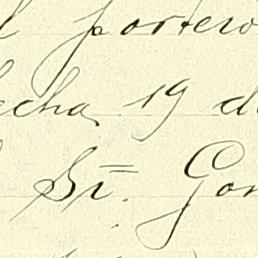 l portero
echa 19 d
Sr. Gon